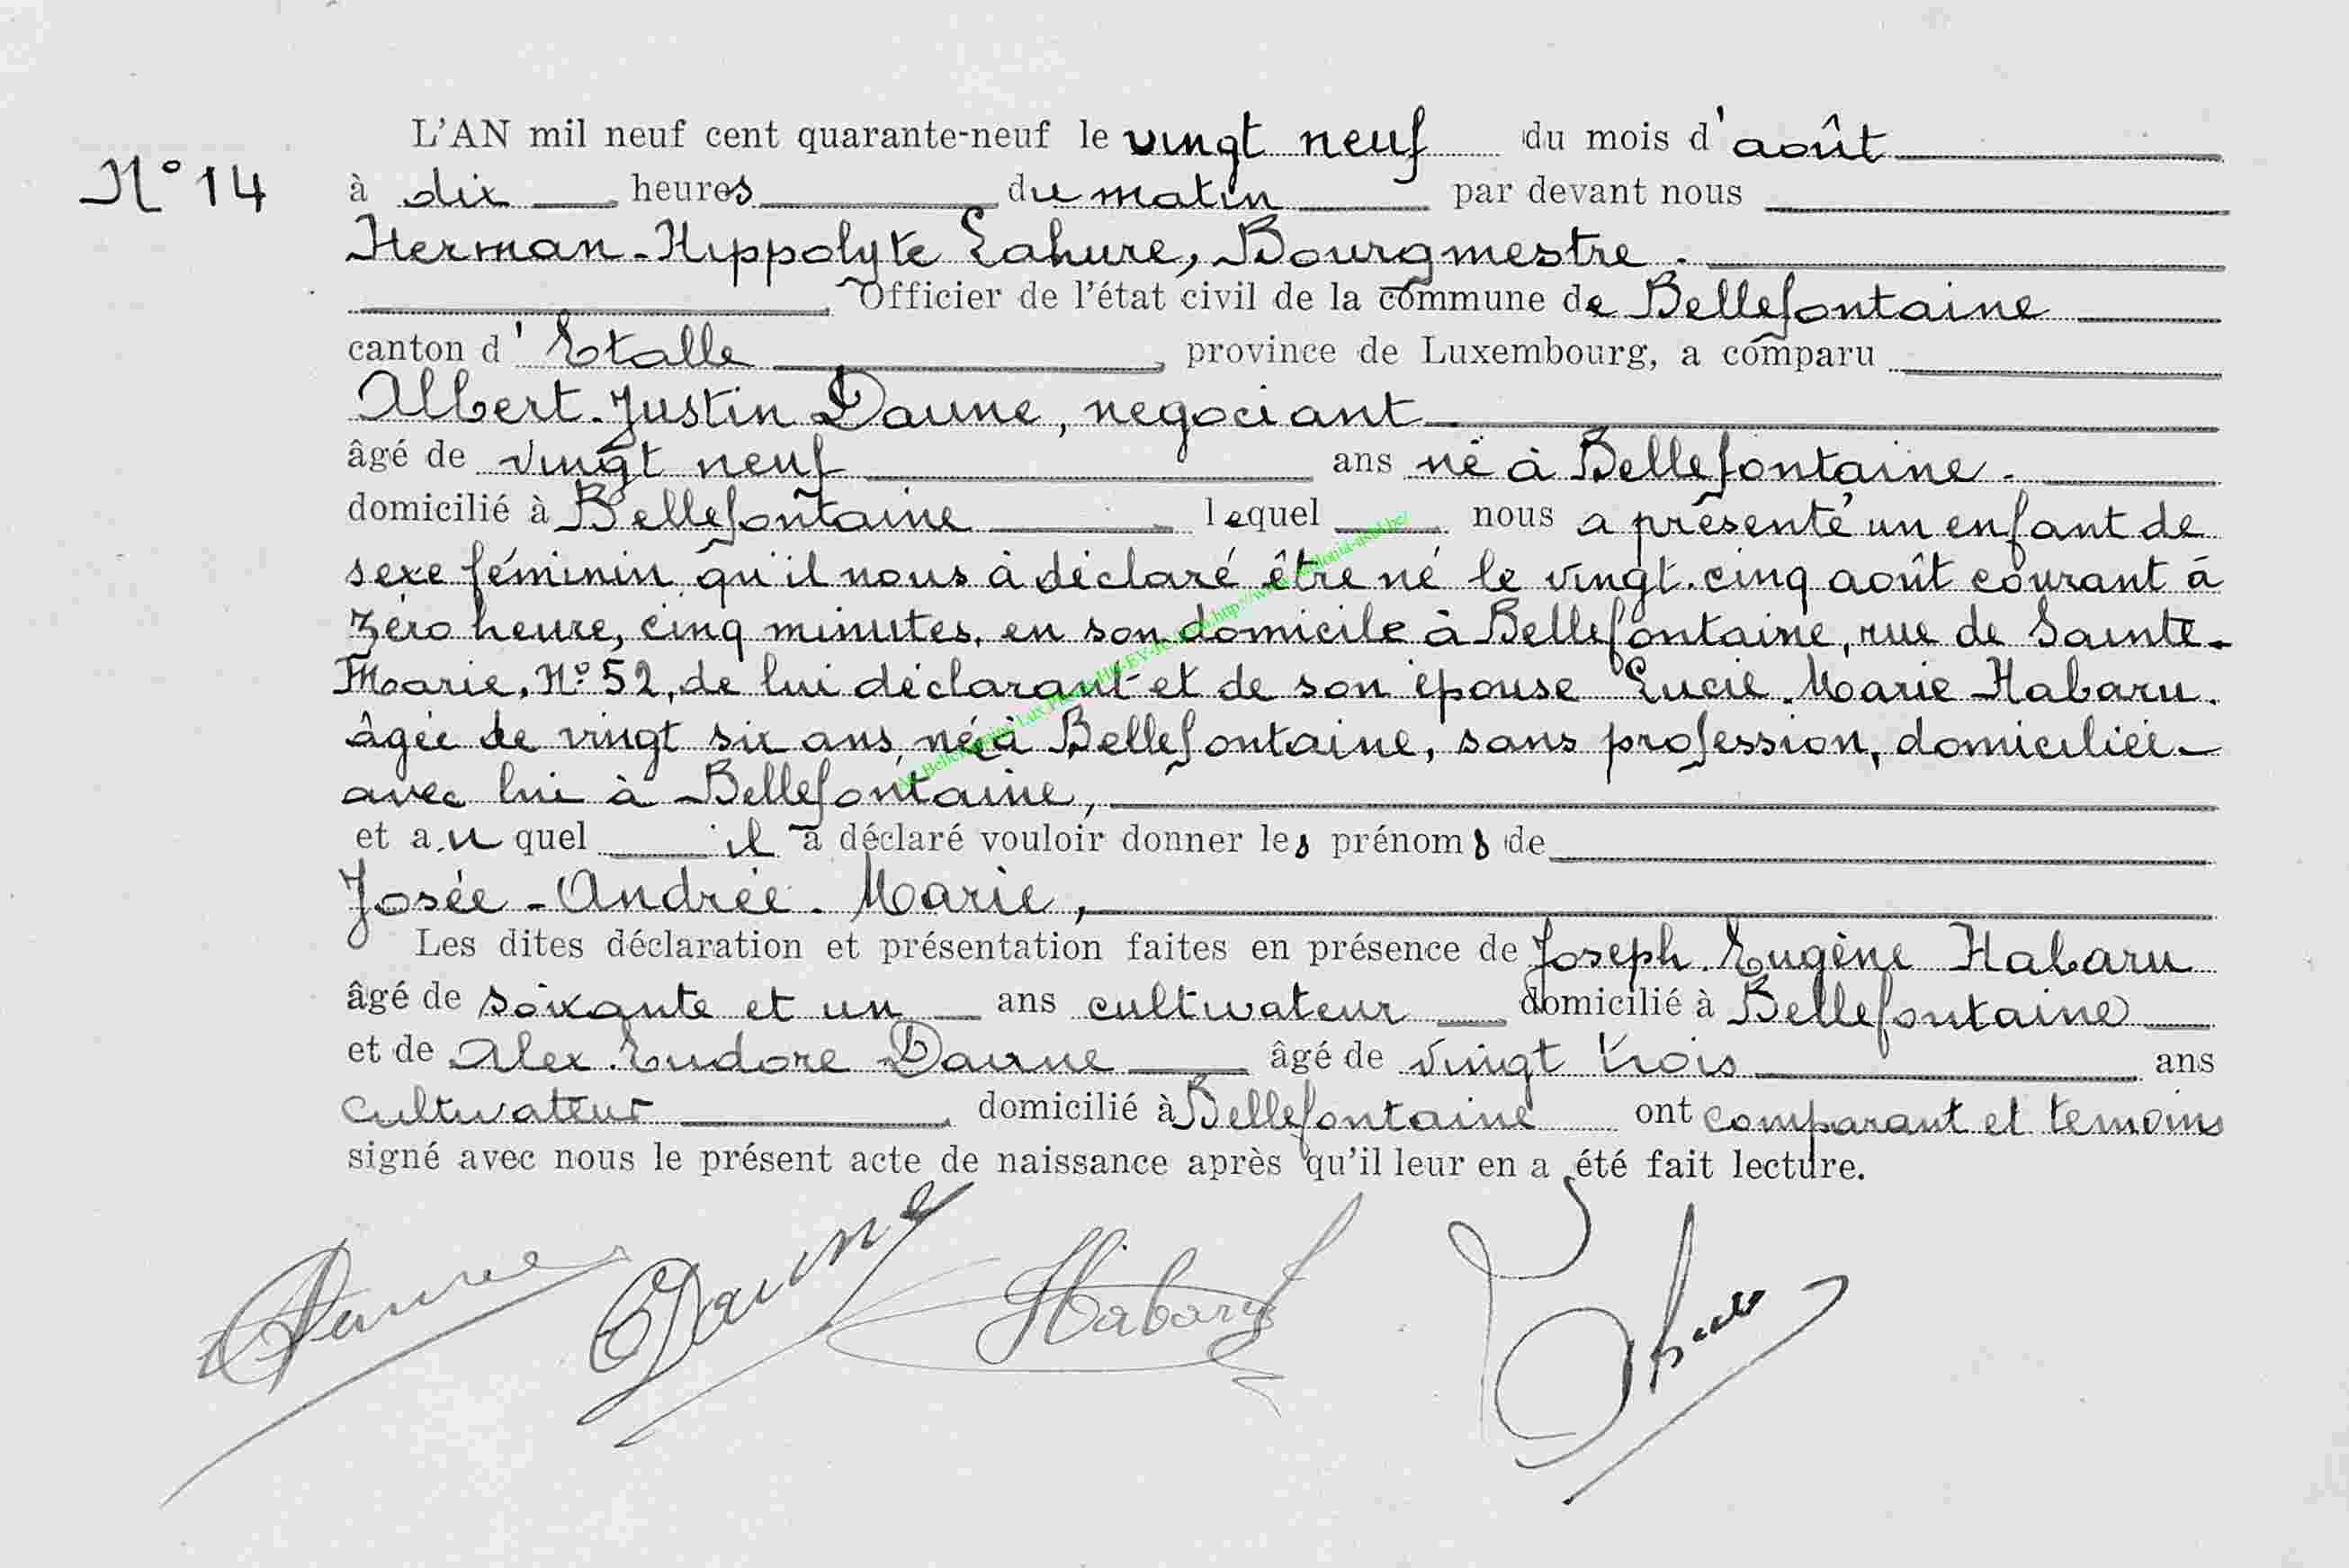 L'AN mil neuf cent quarante-neuf le vingt neuf du mois d'août
N° 14
à dix heures du matin par devant nous
Herman-Hippolyte Lahure, Bourgmestre.
Officier de l'état civil de la commune de Bellefontaine
canton d'Etalle province de Luxembourg, a comparu
Albert-Justin Daune, negociant
âgé de vingt neuf ans né à Bellefontaine.
domicilié à Bellefontaine lequel nous a présenté un enfant de
sexe féminin qu'il nous à déclaré être né le vingt-cinq août courant à
zéro heure, cinq minutes, en son domicile à Bellefontaine, rue de Sainte-
Marie, N° 52, de lui déclarant et de son épouse Lucie-Marie Habaru.
âgée de vingt six ans, né à Bellefontaine, sans profession, domiciliée
avec lui à Bellefontaine,
et auquel il a déclaré vouloir donner les prénoms de
Josée-Andrée-Marie,
Les dites déclaration et présentation faites en présence de Joseph-Eugène Habaru
âgé de soixante et un ans cultivateur domicilié à Bellefontaine
et de Alex-Eudore Daune âgé de vingt trois ans
cultivateur domicilié à Bellefontaine ont comparant et temoins
signé avec nous le présent acte de naissance après qu'il leur en a été fait lecture.
Daune Daune Habaru